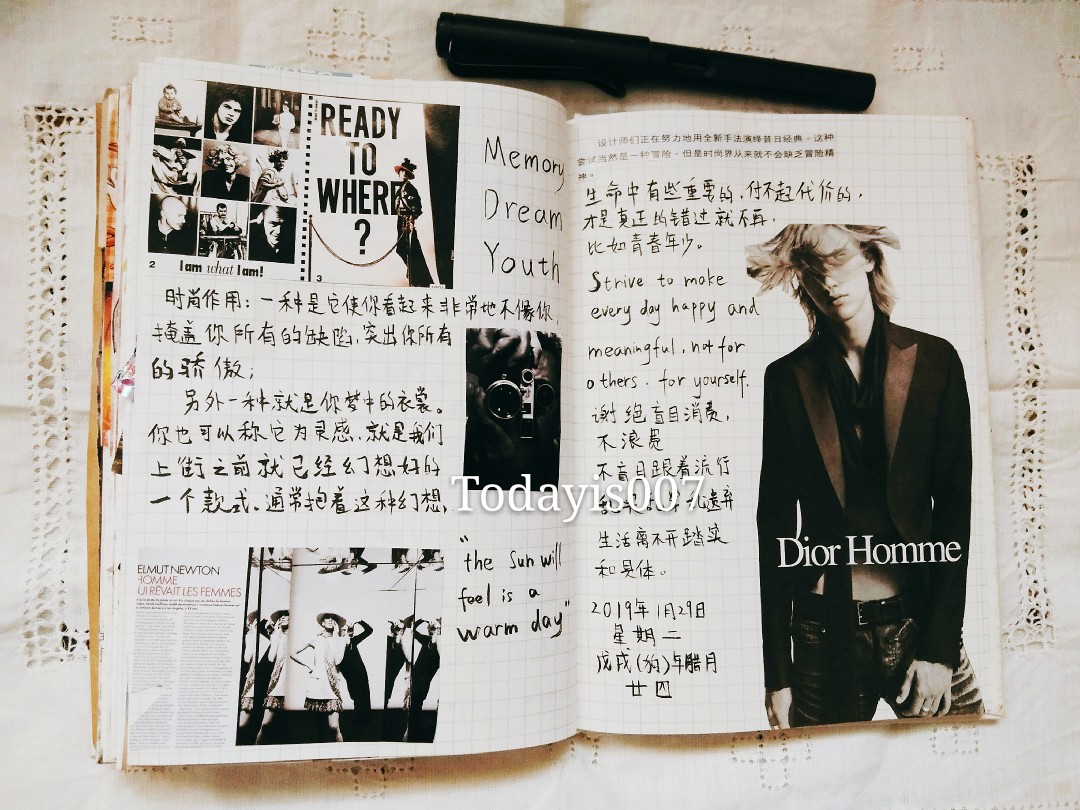 READY
TO
WHERE
?
2
I am what I am!
3
Memory
Dream
Youth
时尚作用：一种是它使你看起来非常地不像你，
掩盖你所有的缺陷，突出你所有
的骄傲；
另外一种就是你梦中的衣裳。
你也可以称它为灵感，就是我们
上街之前就已经幻想好的
一个款式。通常抱着这种幻想，
ELMUT NEWTON
HOMME
UI RÊVAIT LES FEMMES
"the sun will
feel is a
warm day"
设计师们正在努力地用全新手法演绎昔日经典，这种
尝试当然是一种冒险，但是时尚界从来就不会缺乏冒险精
神。
生命中有些重要的，付不起代价的，
才是真正的错过就不再，
比如青春年少。
Strive to make
every day happy and
meaningful, not for
others. for yourself.
谢绝盲目消费，
不浪费
不盲目跟着流行
遗弃
生活离不开踏实
和具体。
2019年1月29日
星期二
戊戌(狗)年腊月
廿四
Dior Homme
Todayis007